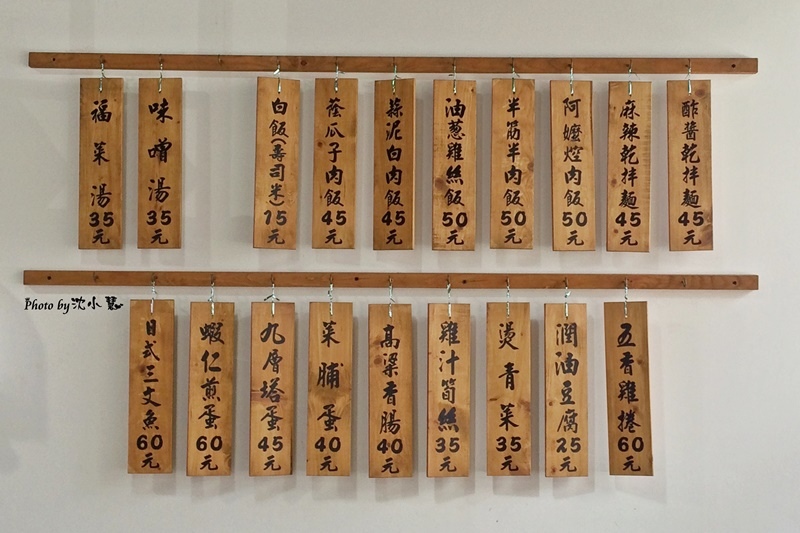 福菜湯35元
味噌湯35元
白飯(壽司米)15元
蔭瓜子肉飯45元
蒜泥白肉飯45元
油蔥雞絲飯50元
半筋半肉飯50元
阿嬤焢肉飯50元
麻辣乾拌麵45元
酢醬乾拌麵45元
Photo by 沈小慧
日式三文魚60元
蝦仁煎蛋60元
九層塔蛋45元
菜脯蛋40元
高梁香腸40元
雞汁筍絲35元
燙青菜35元
潤油豆腐25元
五香雞捲60元